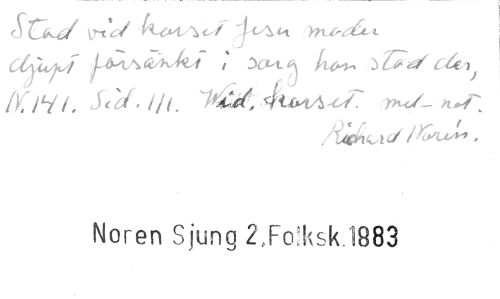 Stod vid korset Jesu moder
djupt försänkt i sorg hon stod der,
N. 141. Sid. 111. Wid. korset. mel-not.
Richard Norén.
Noren Sjung 2,Folksk.1883